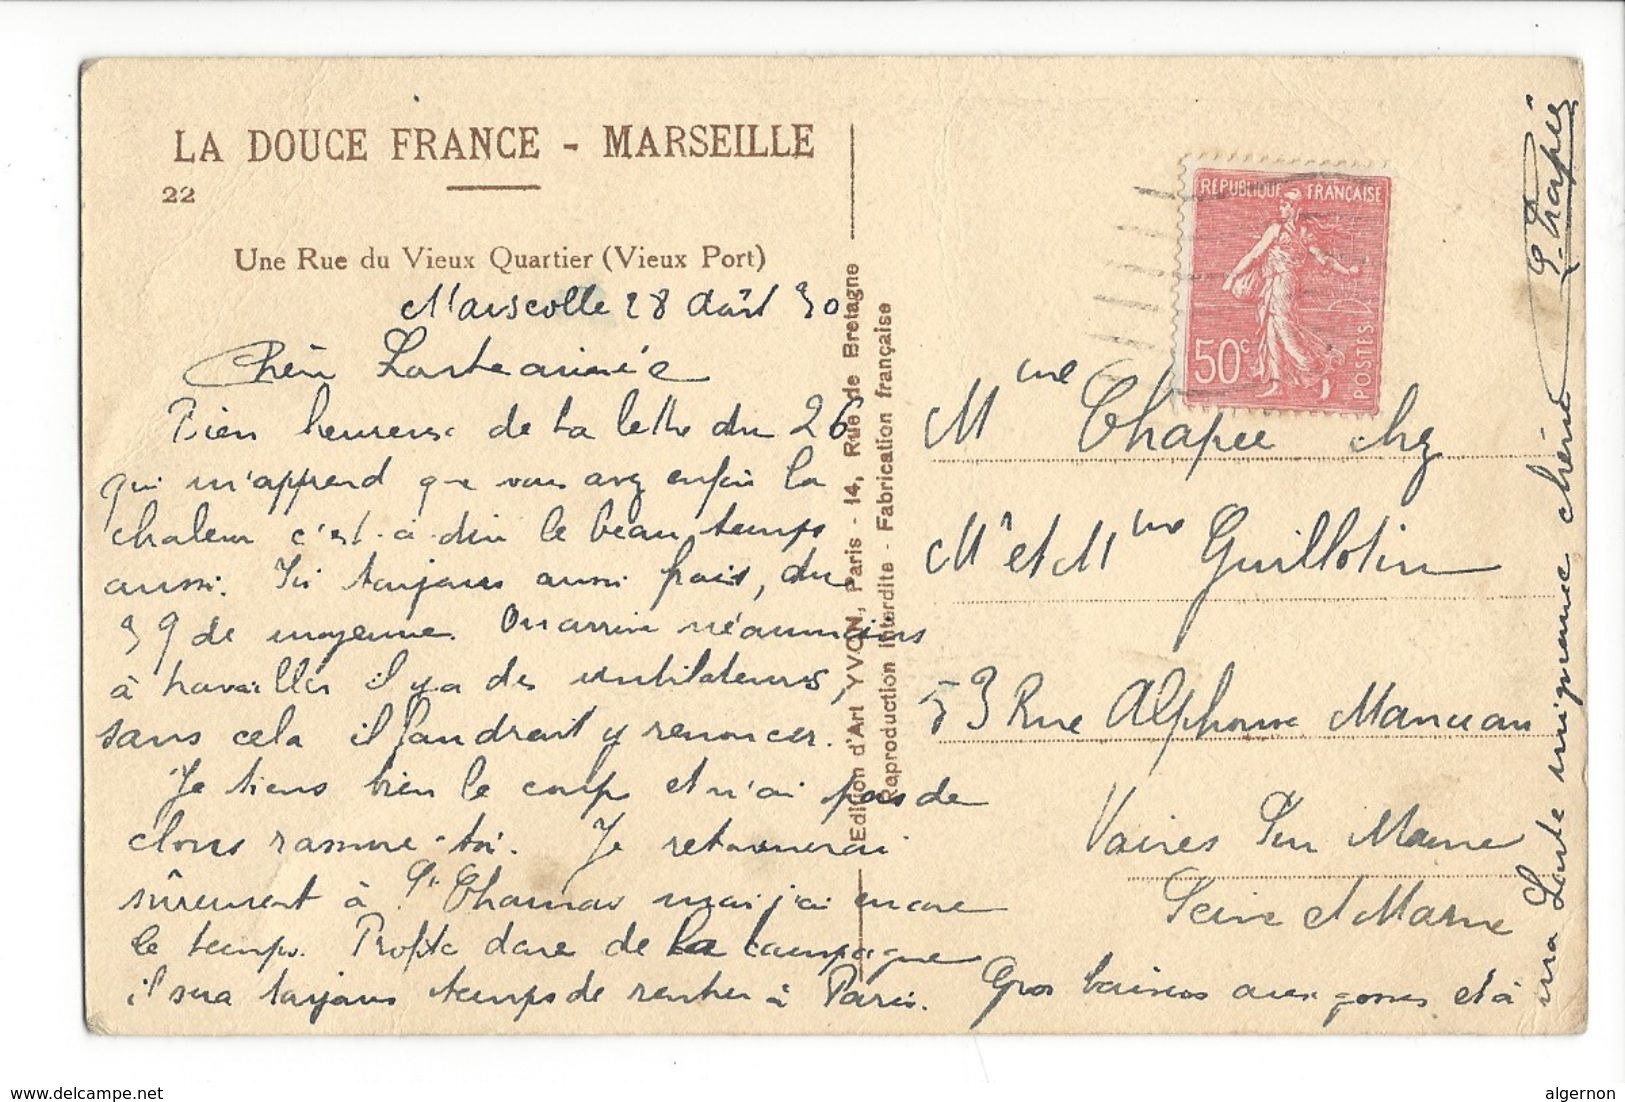 LA DOUCE FRANCE - MARSEILLE
22
Une Rue du Vieux Quartier (Vieux Port)
Marseille 28 Août 30
Chère
Bien heureuse de ta lettre du 26
qui m'apprend que vous avez enfin la
chaleur c'est-à-dire le beau temps
aussi. Ici toujours aussi frais, du
39 de moyenne. On arrive néanmoins
à travailler il y a des ventilateurs,
sans cela il faudrait y renoncer.
Je tiens bien le coup et n'ai pas de
clous rassure-toi. Je retournerai
sûrement à St Chamas mais j'ai encore
le temps. Profite donc de la campagne
il sera toujours temps de rentrer à Paris.
Gros baisers aux gosses et à
ma mignonne chérie
Chapée
Edition d'Art YVON, Paris - 14, Rue de Bretagne
Reproduction interdite - Fabrication française
REPUBLIQUE FRANÇAISE
50c
POSTES
Mme Chapée chez
Mr et Mme Guillotin
53 Rue Alphonse Manceau
Vaires Sur Marne
Seine et Marne
https://www.delcampe.net
algernon